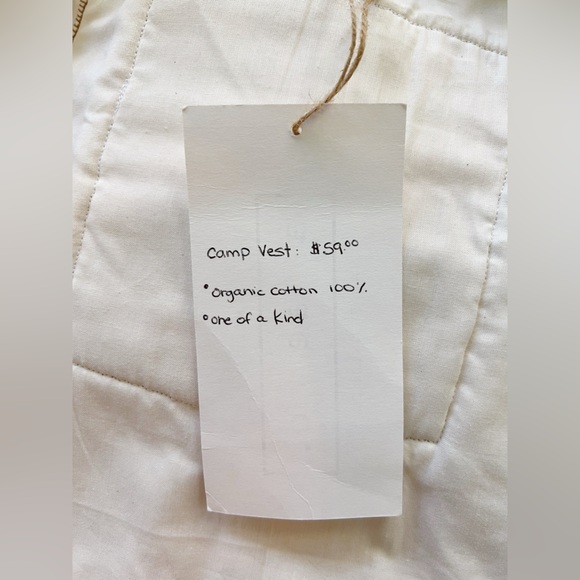 Camp Vest: $59.00
• organic cotton 100%
• one of a kind